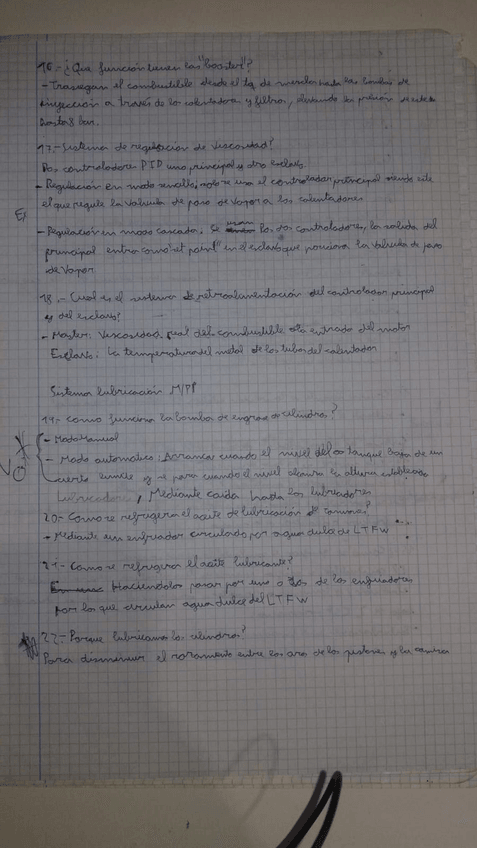 16.- ¿Que función tienen las "booster"?
- Trasegan el combustible desde el tq de mezcla hasta las bombas de
inyección a través de los calentadores y filtros, elevando la presión desde
hasta 8 bar.
17.- Sistema de regulación de Viscosidad?
Por controladores PID uno principal y otro esclavo.
- Regulación en modo sencillo, solo se usa el controlador principal siendo este
el que regule la valvula de paso de vapor a los calentadores
- Regulación en modo cascada. Se usan los dos controladores, la salida del
principal entra como "set point" en el esclavo que posiciona la valvula de paso
de vapor
18.- Cual es el sistema de retroalimentación del controlador principal
y del esclavo?
- Master: Viscosidad real del combustible a la entrada del motor
Esclavo: La temperatura del metal de los tubos del calentador
Sistema lubricación MPP
19.- Como funciona la bomba de engrase de cilindros?
- Modo Manual
- Modo automatico: Arranca cuando el nivel del tanque baja de un
cierto limite y se para cuando el nivel alcanza la altura establecida
, Mediante caida hasta los lubricadores
20.- Como se refrigera el aceite de lubricación de camones?
- Mediante un enfriador circulando por agua dulce de LTFW
21.- Como se refrigera el aceite lubricante?
Haciendolos pasar por uno o dos de los enfriadores
por los que circulan agua dulce del LTFW
22.- Porque lubricamos los cilindros?
Para disminuir el rozamiento entre los aros de los pistones y las camisas